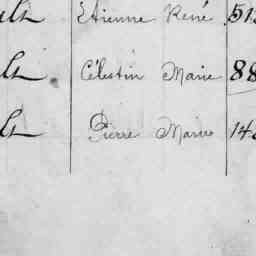 ult Etienne René 51
lt Célestin Marie 88
lt Pierre Marie 14